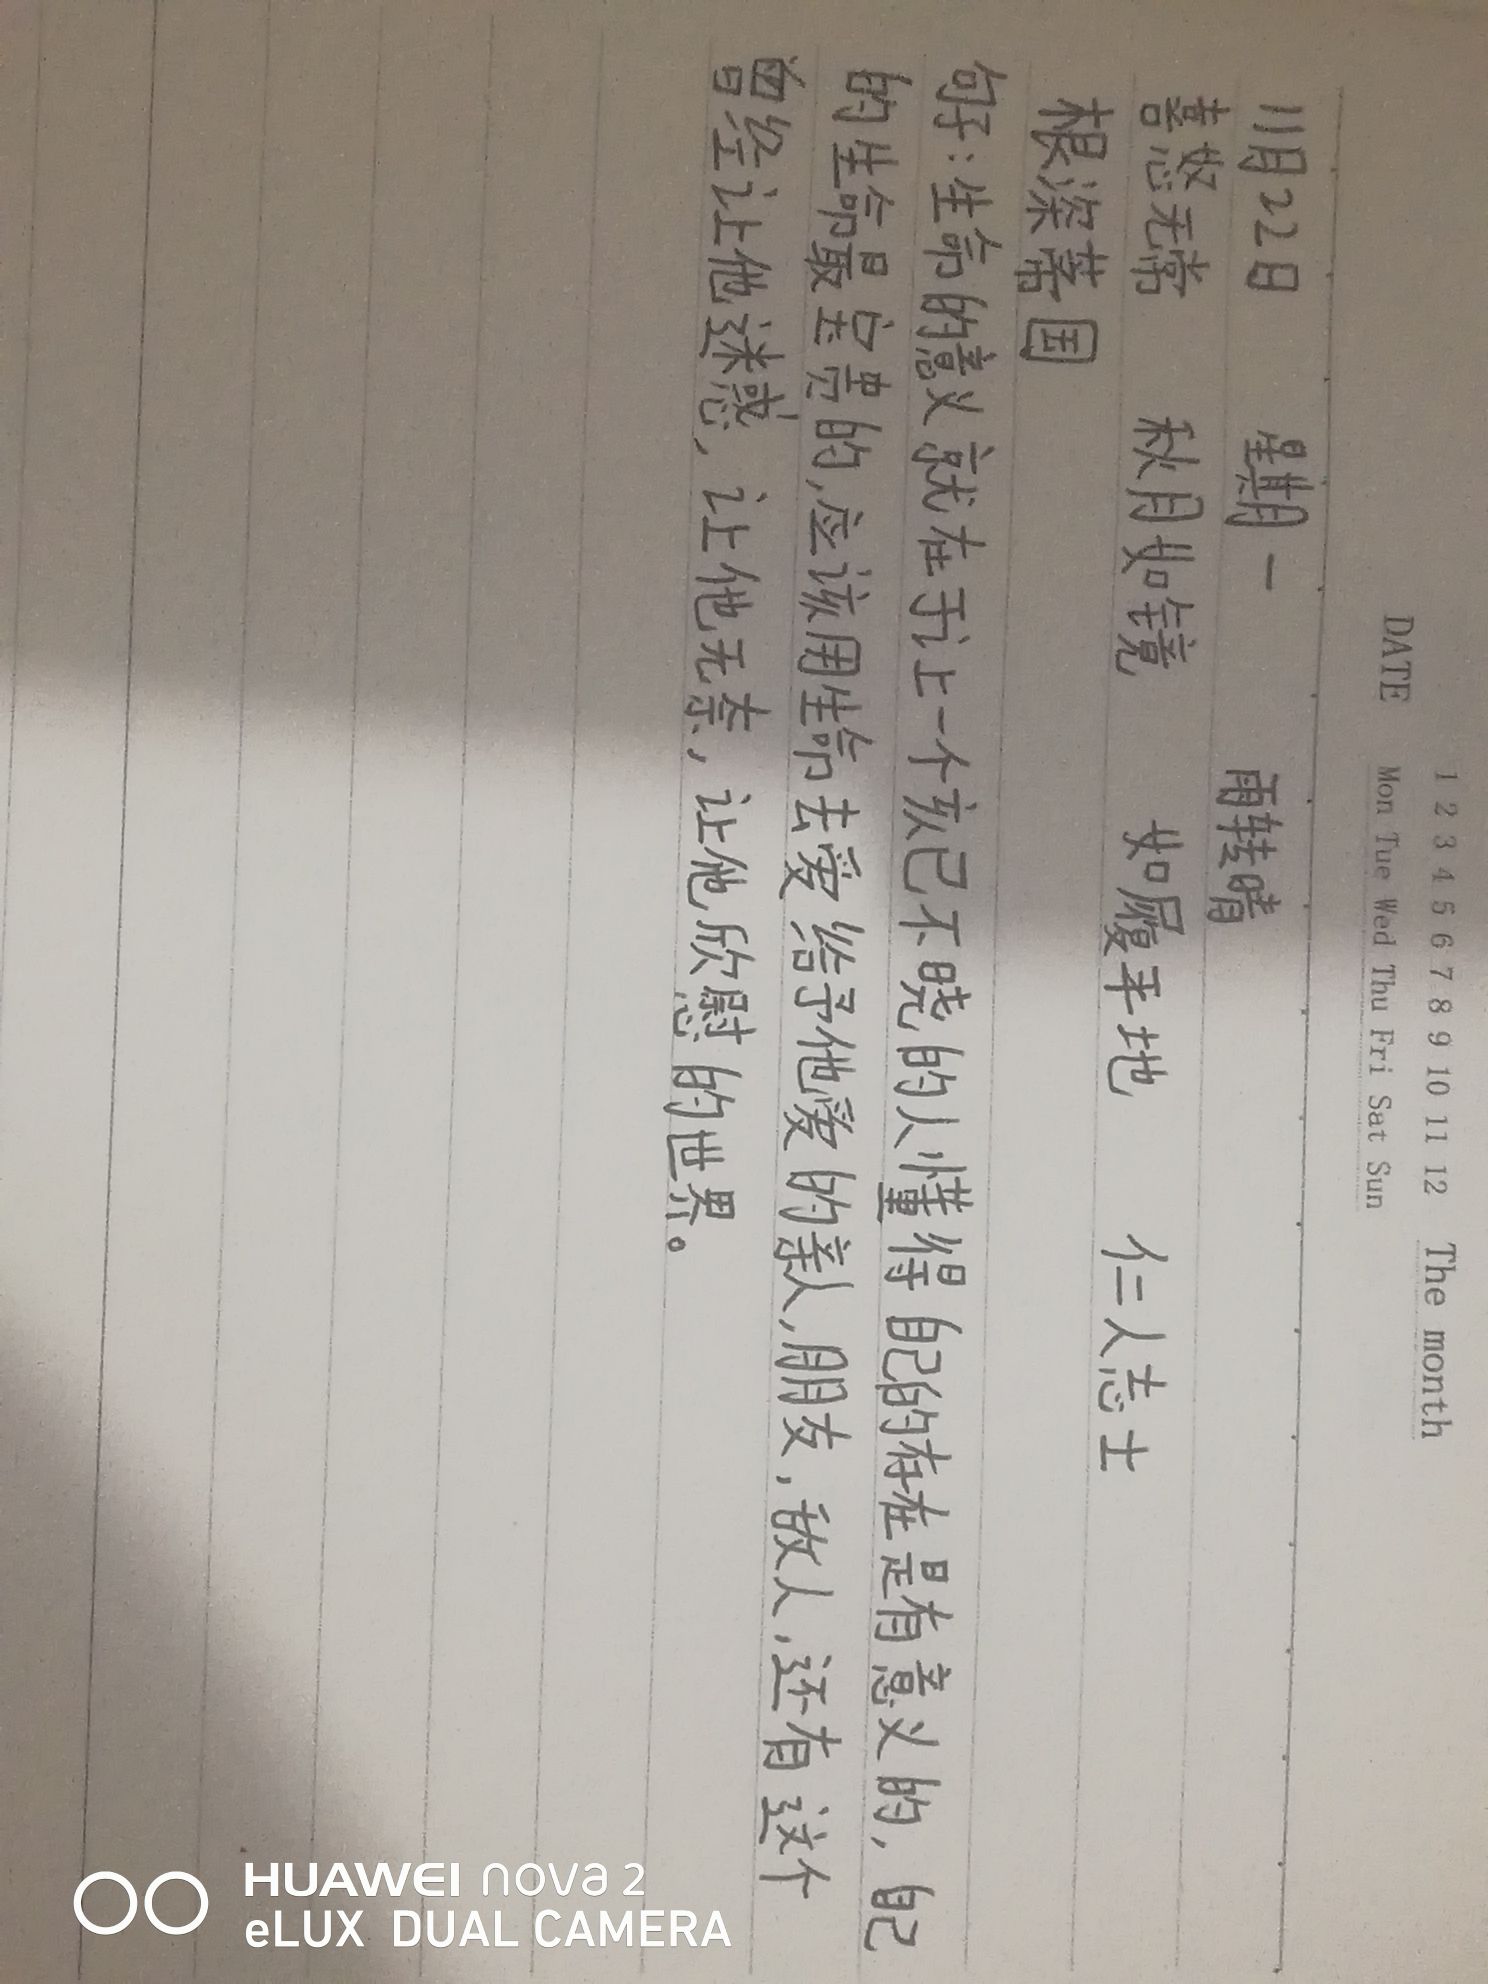 1 2 3 4 5 6 7 8 9 10 11 12 The month
DATE Mon Tue Wed Thu Fri Sat Sun
11月22日 星期一 雨转晴
喜怒无常 秋月如镜 如履平地 仁人志士
根深蒂固
句子:生命的意义就在于让上一个亥已不晓的人懂得自己的存在是有意义的,自己
的生命最宝贵的,应该用生命去爱给予他爱的亲人,朋友,敌人,还有这个
曾经让他迷惑,让他无奈,让他欣慰的世界。
HUAWEI nova 2
eLUX DUAL CAMERA